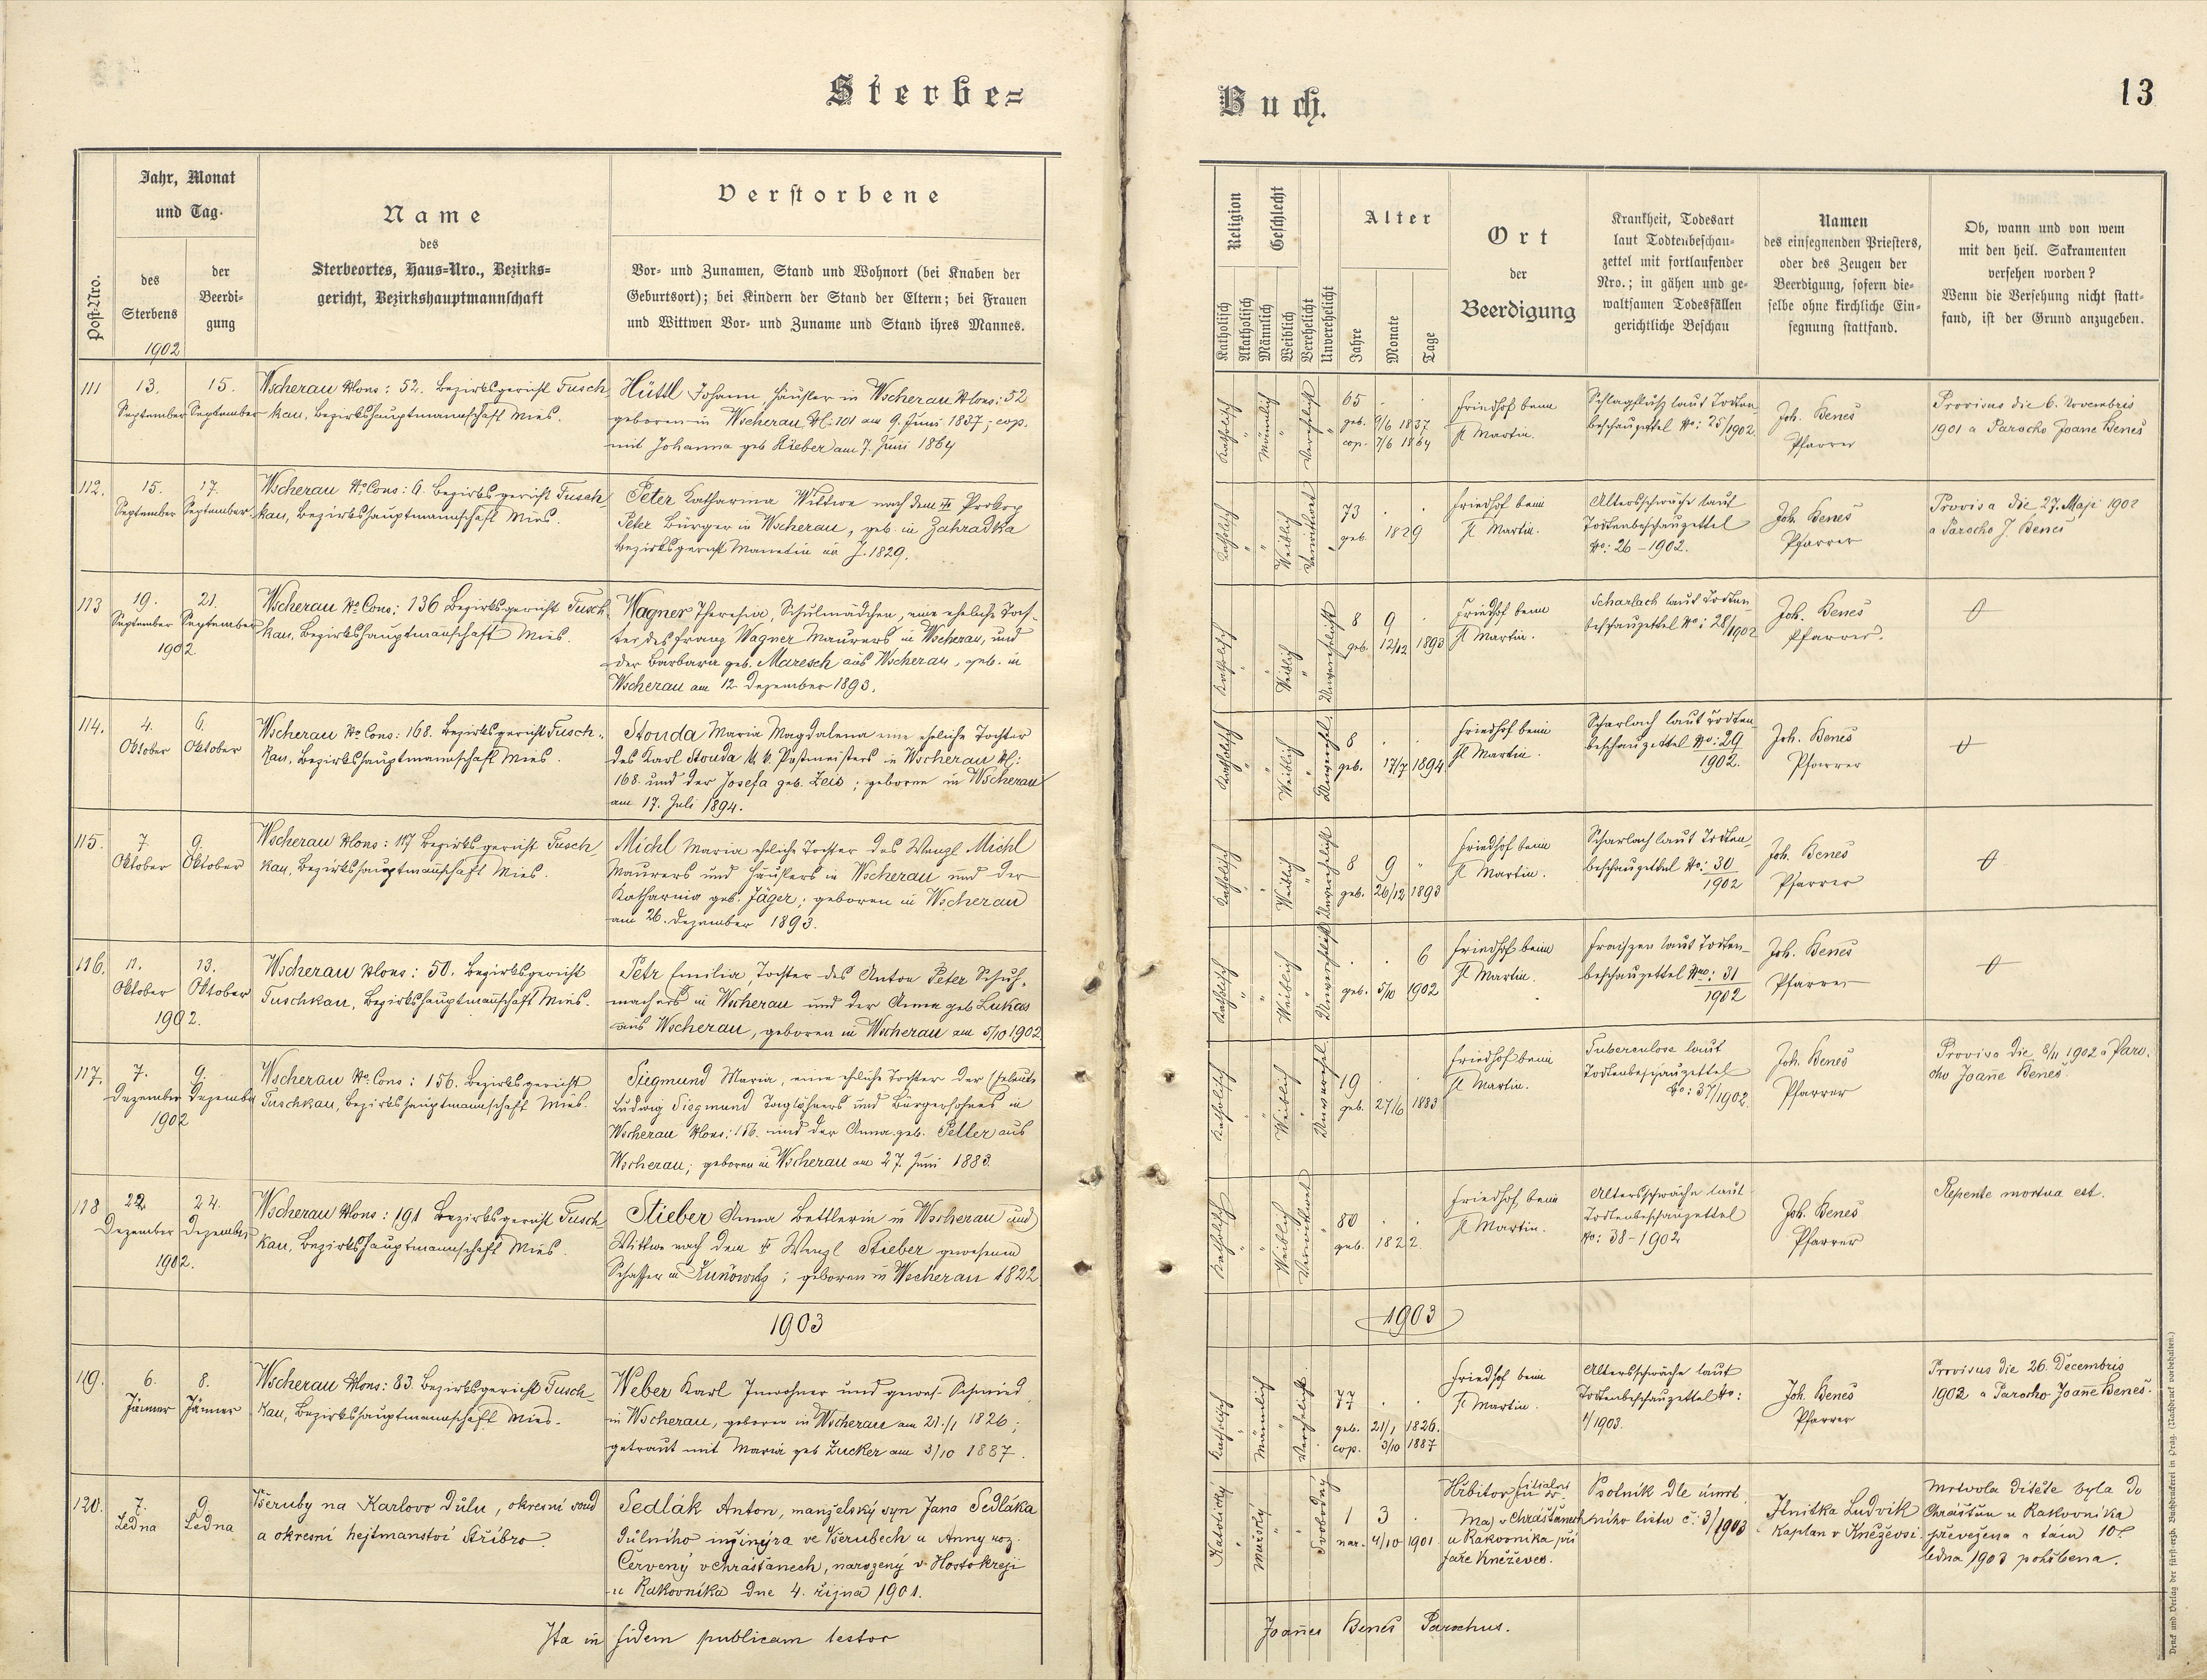 Sterbe=
Buch.
13
Post-Nro.
Jahr, Monat
und Tag.
des
Sterbens
der
Beerdi-
gung
1902
Name
des
Sterbeortes, Haus=Nro., Bezirks=
gericht, Bezirkshauptmannschaft
Verstorbene
Vor- und Zunamen, Stand und Wohnort (bei Knaben der
Geburtsort); bei Kindern der Stand der Eltern; bei Frauen
und Wittwen Vor- und Zuname und Stand ihres Mannes.
Religion
Katholisch
Akatholisch
Geschlecht
Männlich
Weiblich
Verehelicht
Unverehelicht
Alter
Jahre
Monate
Tage
Ort
der
Beerdigung
Krankheit, Todesart
laut Todtenbeschau-
zettel mit fortlaufender
Nro.; in gähen und ge-
waltsamen Todesfällen
gerichtliche Beschau
Namen
des einsegnenden Priesters,
oder des Zeugen der
Beerdigung, sofern die-
selbe ohne kirchliche Ein-
segnung stattfand.
Ob, wann und von wem
mit den heil. Sakramenten
versehen worden?
Wenn die Versehung nicht statt-
fand, ist der Grund anzugeben.
111
13.
September
15.
September
Wscherau Nons: 52. Bezirksgericht Tusch-
kau, Bezirkshauptmannschaft Mies.
Hüttl Johann, Häusler in Wscherau Nons: 52
geboren in Wscherau N: 101 am 9. Juni 1837; cop.
mit Johanna geb. Stieber am 7. Juni 1864
Katholisch
Männlich
Verehelicht
65
geb. 9/6 1837
cop. 7/6 1864
Friedhof beim
St Martin.
Schlagfluß laut Todten-
beschauzettel No: 25/1902.
Joh. Beneš
Pfarrer
Provisus die 6. Novembris
1901 a Parocho Joane Beneš
112.
15.
September
17.
September
Wscherau No Cons: 6. Bezirksgericht Tusch-
kau, Bezirkshauptmannschaft Mies.
Peter Katharina Wittwe nach dem Prokop
Peter Bürger in Wscherau, geb. in Zahradka
Bezirksgericht Manetin im J. 1829.
Katholisch
Weiblich
Verwitwet
73
geb. 1829
Friedhof beim
St Martin.
Altersschwäche laut
Todtenbeschauzettel
No: 26-1902.
Joh. Beneš
Pfarrer
Provisa die 27. Maji 1902
a Parocho J. Beneš
113
19.
September
21.
September
1902
Wscherau No Cons: 136 Bezirksgericht Tusch-
kau, Bezirkshauptmanschaft Mies.
Wagner Theresia, Schulmädchen, eine eheliche Toch-
ter, des Franz Wagner Maurers in Wscherau, und
der Barbara geb. Maresch aus Wscherau, geb. in
Wscherau am 12. Dezember 1893.
Katholisch
Weiblich
Unverehelicht
8 9
geb. 12/12 1893
Friedhof beim
St Martin.
Scharlach laut Todten-
beschauzettel No: 28/1902
Joh. Beneš
Pfarrer.
114.
4.
Oktober
6.
Oktober
Wscherau No Cons: 168. Bezirksgericht Tusch-
kau, Bezirkshauptmannschaft Mies.
Stouda Maria Magdalena eine eheliche Tochter
des Karl Stouda k. k. Postmeisters in Wscherau N:
168. und der Josefa geb. Zeis; geboren in Wscherau
am 17. Juli 1894.
Katholisch
Weiblich
Unverehel.
8
geb. 17/7 1894
Friedhof beim
St Martin.
Scharlach laut Todten-
beschauzettel No: 29
1902.
Joh. Beneš
Pfarrer
115.
7.
Oktober
9.
Oktober
Wscherau Nons: 117 Bezirksgericht Tusch-
kau, Bezirkshauptmannschaft Mies.
Michl Maria eheliche Tochter des Wenzl Michl
Maurers und Häuslers in Wscherau und der
Katharina geb. Jäger; geboren in Wscherau
am 26. Dezember 1893.
Katholisch
Weiblich
Unverehelicht
8 9
geb. 26/12 1893
Friedhof beim
St Martin.
Scharlach laut Todten-
beschauzettel No: 30
1902
Joh. Beneš
Pfarrer
116.
11.
Oktober
13.
Oktober
1902.
Wscherau Nons: 50. Bezirksgericht
Tuschkau, Bezirkshauptmannschaft Mies.
Petr Emilia, Tochter des Anton Peter Schuh-
machers in Wscherau und der Anna geb. Lukas
aus Wscherau, geboren in Wscherau am 5/10 1902
Katholisch
Weiblich
Unverehelicht
6
geb. 5/10 1902
Friedhof beim
St Martin.
Fraiszen laut Todten-
beschauzettel No: 31
1902
Joh. Beneš
Pfarrer
117.
7.
Dezember
9.
Dezember
1902
Wscherau No Cons: 156. Bezirksgericht
Tuschkau, Bezirkshauptmannschaft Mies.
Siegmund Maria, eine eheliche Tochter der Eheleute
Ludwig Siegmund Taglöhners und Bürgersohnes in
Wscherau Nons: 156. und der Anna geb. Peller aus
Wscherau; geboren in Wscherau am 27. Juni 1883.
Katholisch
Weiblich
Unverehel.
19
geb. 27/6 1883
Friedhof beim
St Martin.
Tuberculose laut
Todtenbeschauzettel
No: 37/1902.
Joh. Beneš
Pfarrer
Provisa die 8/11 1902 a Paro-
cho Joanne Beneš.
118
22.
Dezember
24.
Dezember
1902.
Wscherau Nons: 191 Bezirksgericht Tusch-
kau, Bezirkshauptmannschaft Mies.
Stieber Anna Bettlerin in Wscherau und
Wittwe nach dem Wenzl Stieber gewesenem
Schaffer in Kunowitz; geboren in Wscherau 1822
Katholisch
Weiblich
Verwitwet
80
geb. 1822.
Friedhof beim
St Martin.
Altersschwäche laut
Todtenbeschauzettel
No: 38-1902
Joh. Beneš
Pfarrer
Repente mortua est.
1903
1903
119.
6.
Jänner
8.
Jänner
Wscherau Nons: 83. Bezirksgericht Tusch-
kau, Bezirkshauptmannschaft Mies.
Weber Karl Inwohner und gewes. Schmied
in Wscherau, geboren in Wscherau am 21./1 1826;
getraut mit Maria geb. Zucker am 3/10 1887.
Katholisch
Männlich
Verehelicht
77
geb. 21/1 1826.
cop. 3/10 1887
Friedhof beim
St Martin.
Altersschwäche laut
Todtenbeschauzettel No:
1/1903.
Joh. Beneš
Pfarrer
Provisus die 26. Decembris
1902 a Parocho Joanne Beneš.
120.
7.
Ledna
9.
Ledna
Všeruby na Karlovo Důlu, okresní soud
a okresní hejtmanství Stříbro.
Sedlák Anton, manželský syn Jana Sedláka
důlního inžinýra ve Všerubech a Anny roz.
Červený v Chrášťanech, narozený v Hostokreji
u Rakovníka dne 4. října 1901.
Katolický
Mužský
Svobodný
1 3
nar. 4/10 1901
Hřbitov filialní
v Chrášťanech
u Rakovníka při
faře Kněževes.
Psotník dle úmrt.
ního listu č. 3/1903
Ludvik
Kaplan v Kněževsi
Mrtvola dítěte byla do
Chrášťan u Rakovníka
převežena a tam 10.
ledna 1903 pohřbena.
Ita in fidem publicam testor
Joannes Beneš Parochus.
Druck und Verlag der fürst-erzb. Buchdruckerei in Prag. (Nachdruck vorbehalten.)